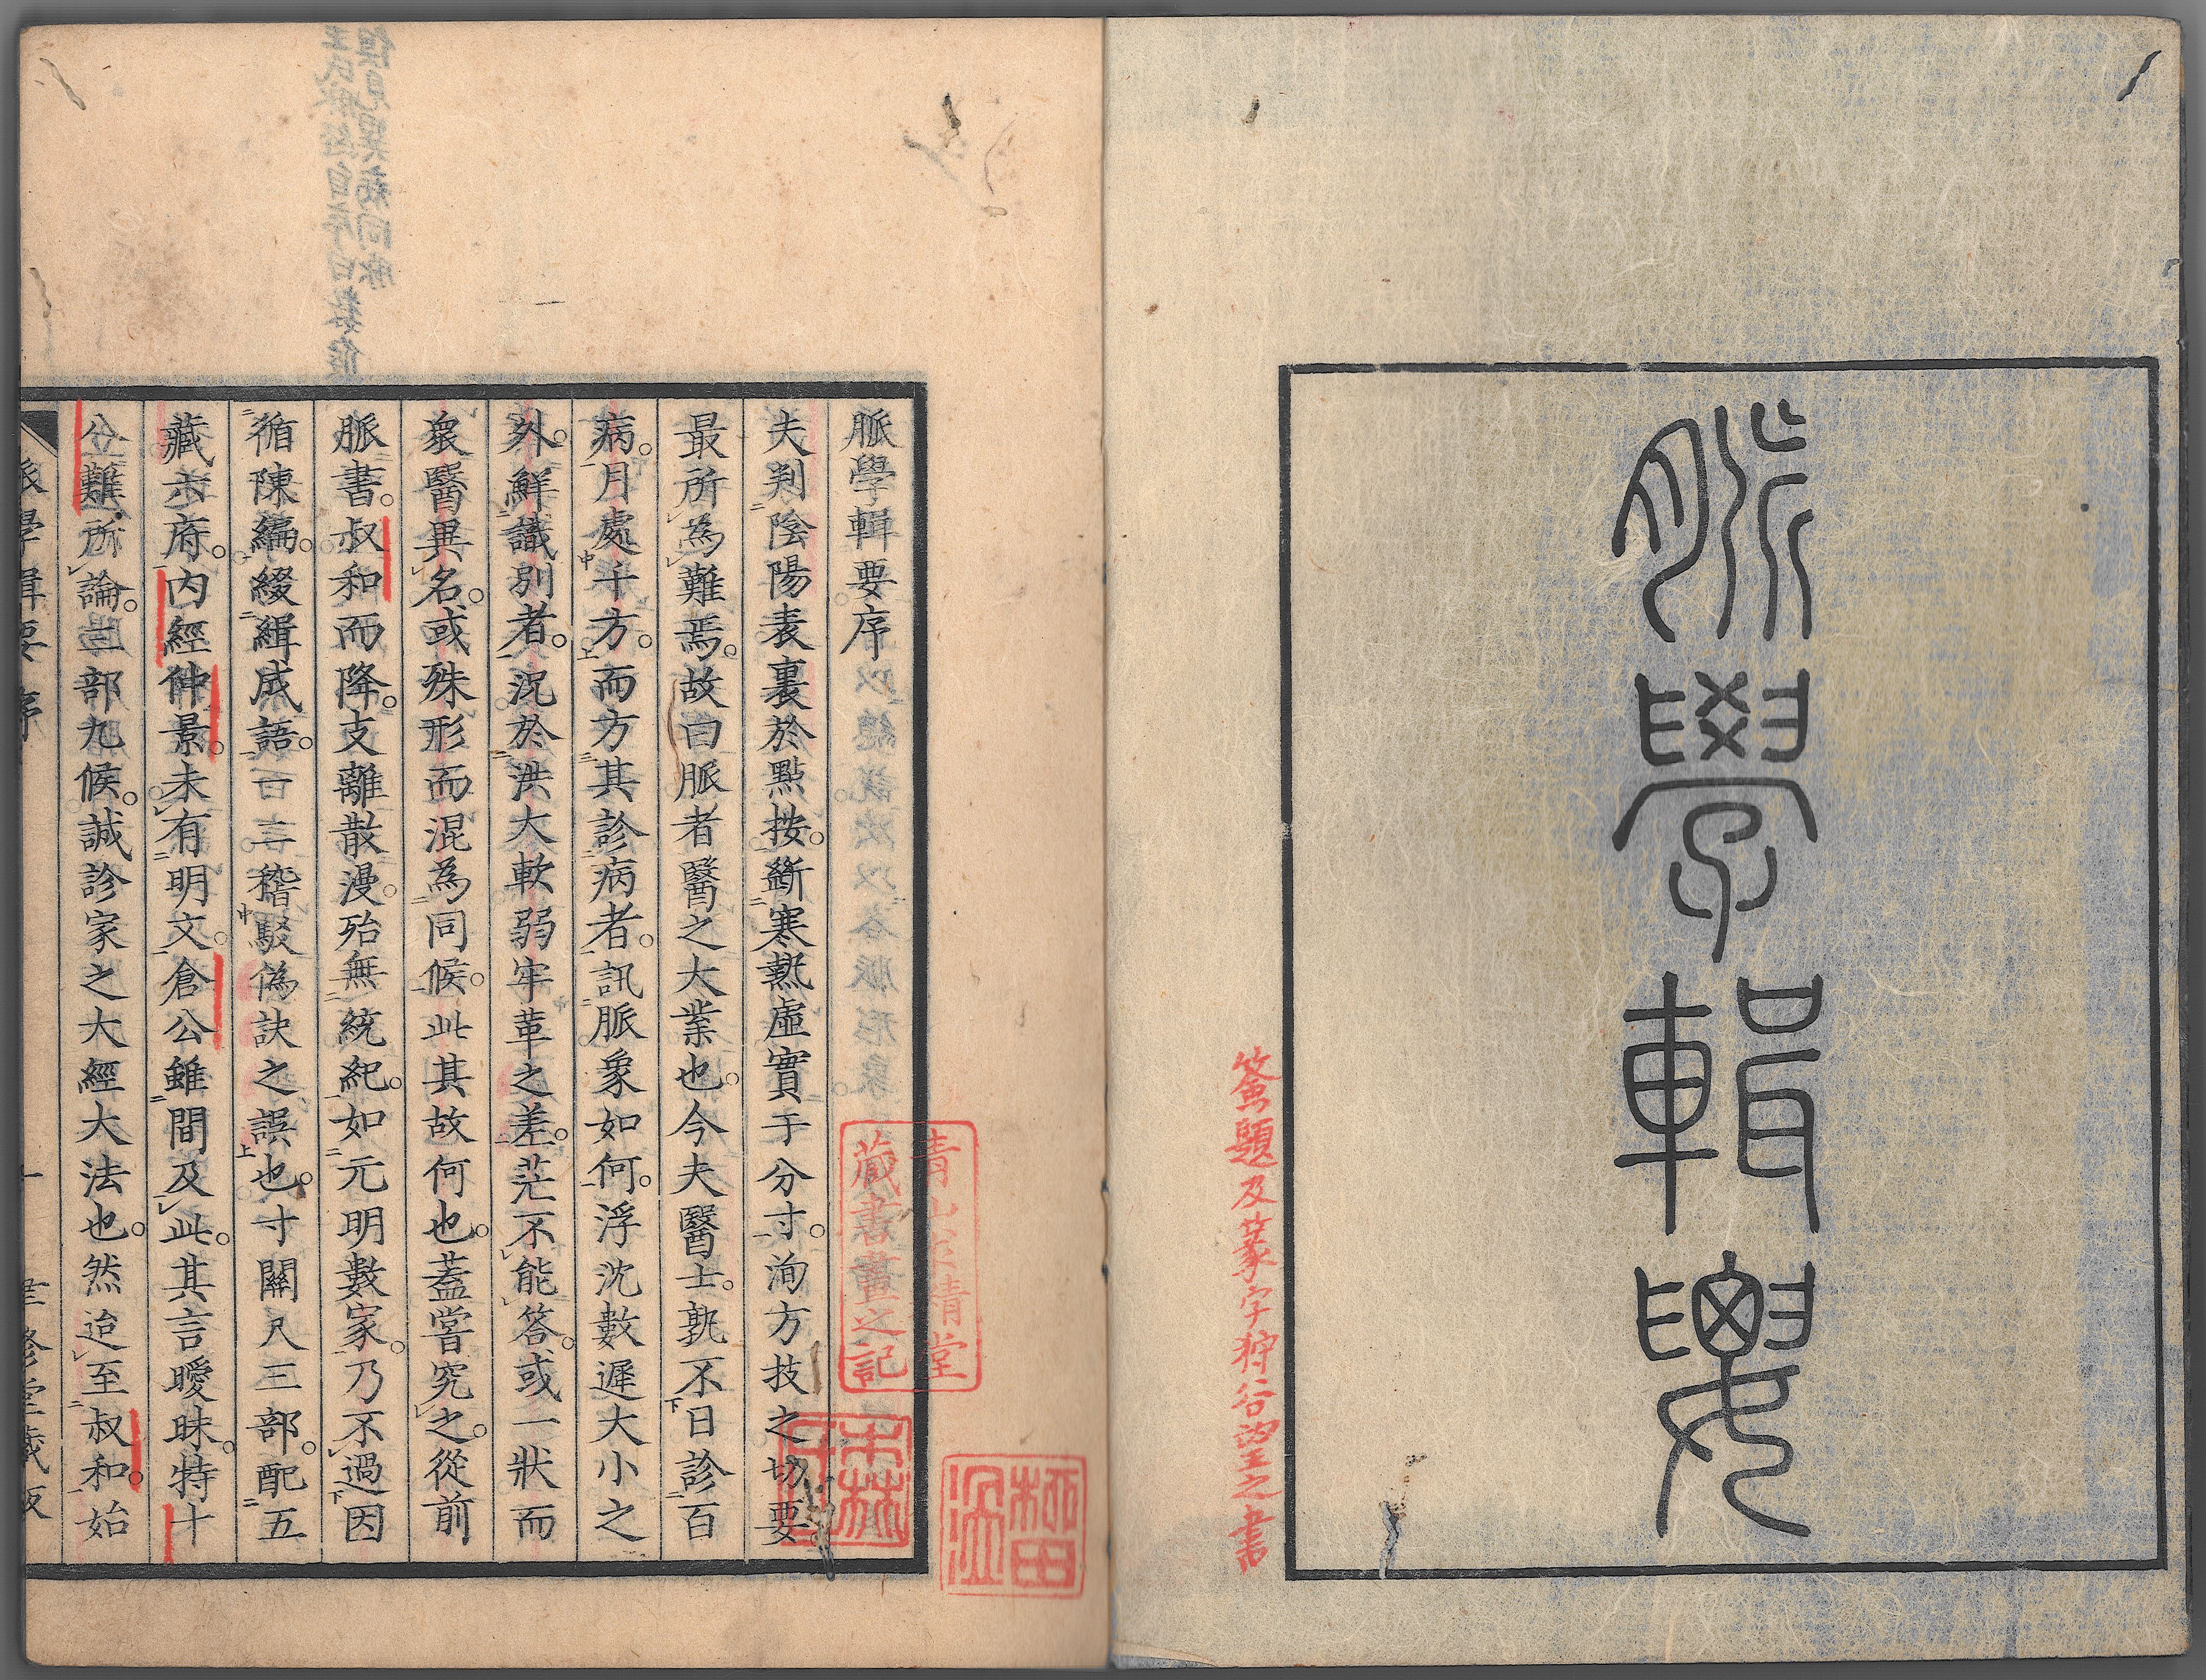 脈學輯要
簽題及篆字狩谷望之書
脈學輯要序
夫判陰陽表裏於點按。斷寒熱虛實于分寸。洵方技之切要。
最所為難焉。故曰脈者醫之大業也。今夫醫士。孰不日診百
病。月處千方。而方其診病者。訊脈象如何。浮沈數遲大小之
外。鮮識別者。況於洪大軟弱牢革之差。茫不能答。或一狀而
衆醫異名。或殊形而混為同候。此其故何也。蓋嘗究之。從前
脈書。叔和而降。支離散漫。殆無統紀。如元明數家。乃不過因
循陳編。綴緝成語。一二稽駁偽訣之誤也。寸關尺三部。配五
藏六府。內經仲景。未有明文。倉公雖間及此。其言曖昧。特十
難所論。三部九候。誠診家之大經大法也。然迨至叔和。始
脈學輯要序
一
聿修堂藏版
青山求精堂
藏書畫之記
森